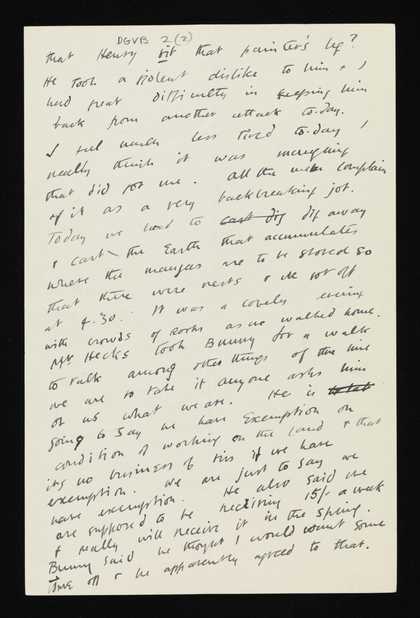 DGVB 2 (2)
that Henry bit that painter's leg?
He took a violent dislike to him & I
had great difficulty in keeping him
back from another attack to-day.
I feel much less tired to-day, I
really think it was
that did for me. All the men complain
of it as a very backbreaking job.
Today we had to cart dig dig away
& cart the Earth that accumulates
where the mangels are to be stored so
that there were rests & we got off
at 4.30. It was a lovely evening
with crowds of rooks as we walked home.
Mr Hecks took Bunny for a walk
to talk among other things of the line
we are to take if anyone asks him
or us what we are. He is
going to say we have Exemption on
condition of working on the land & that
its no business of his if we have
exemption. We are just to say we
have exemption. He also said we
are supposed to be receiving 15/- a week
& really will receive it in the spring.
Bunny said he thought I would want some
time off & he apparently agreed to that.